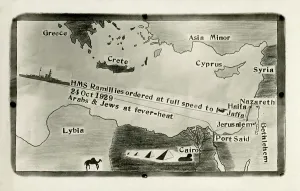 Greece
Asia Minor
Crete
Cyprus
Syria
HMS Ramillies ordered at full speed to
24 Oct 1929
Arabs & Jews at fever-heat
Nazareth
Haifa
Jaffa
Jerusalem
Bethlehem
Port Said
Lybia
Cairo